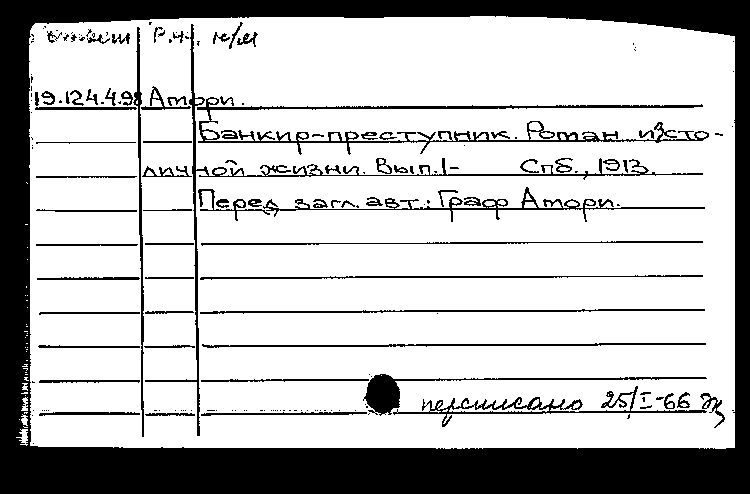 Р.Н. н/м
19.124.4.98 Атори.
Банкир-преступник. Роман из сто-
личной жизни. Вып. 1- Спб., 1913.
Перед загл. авт.: Граф Атори.
переписано 25/I-66